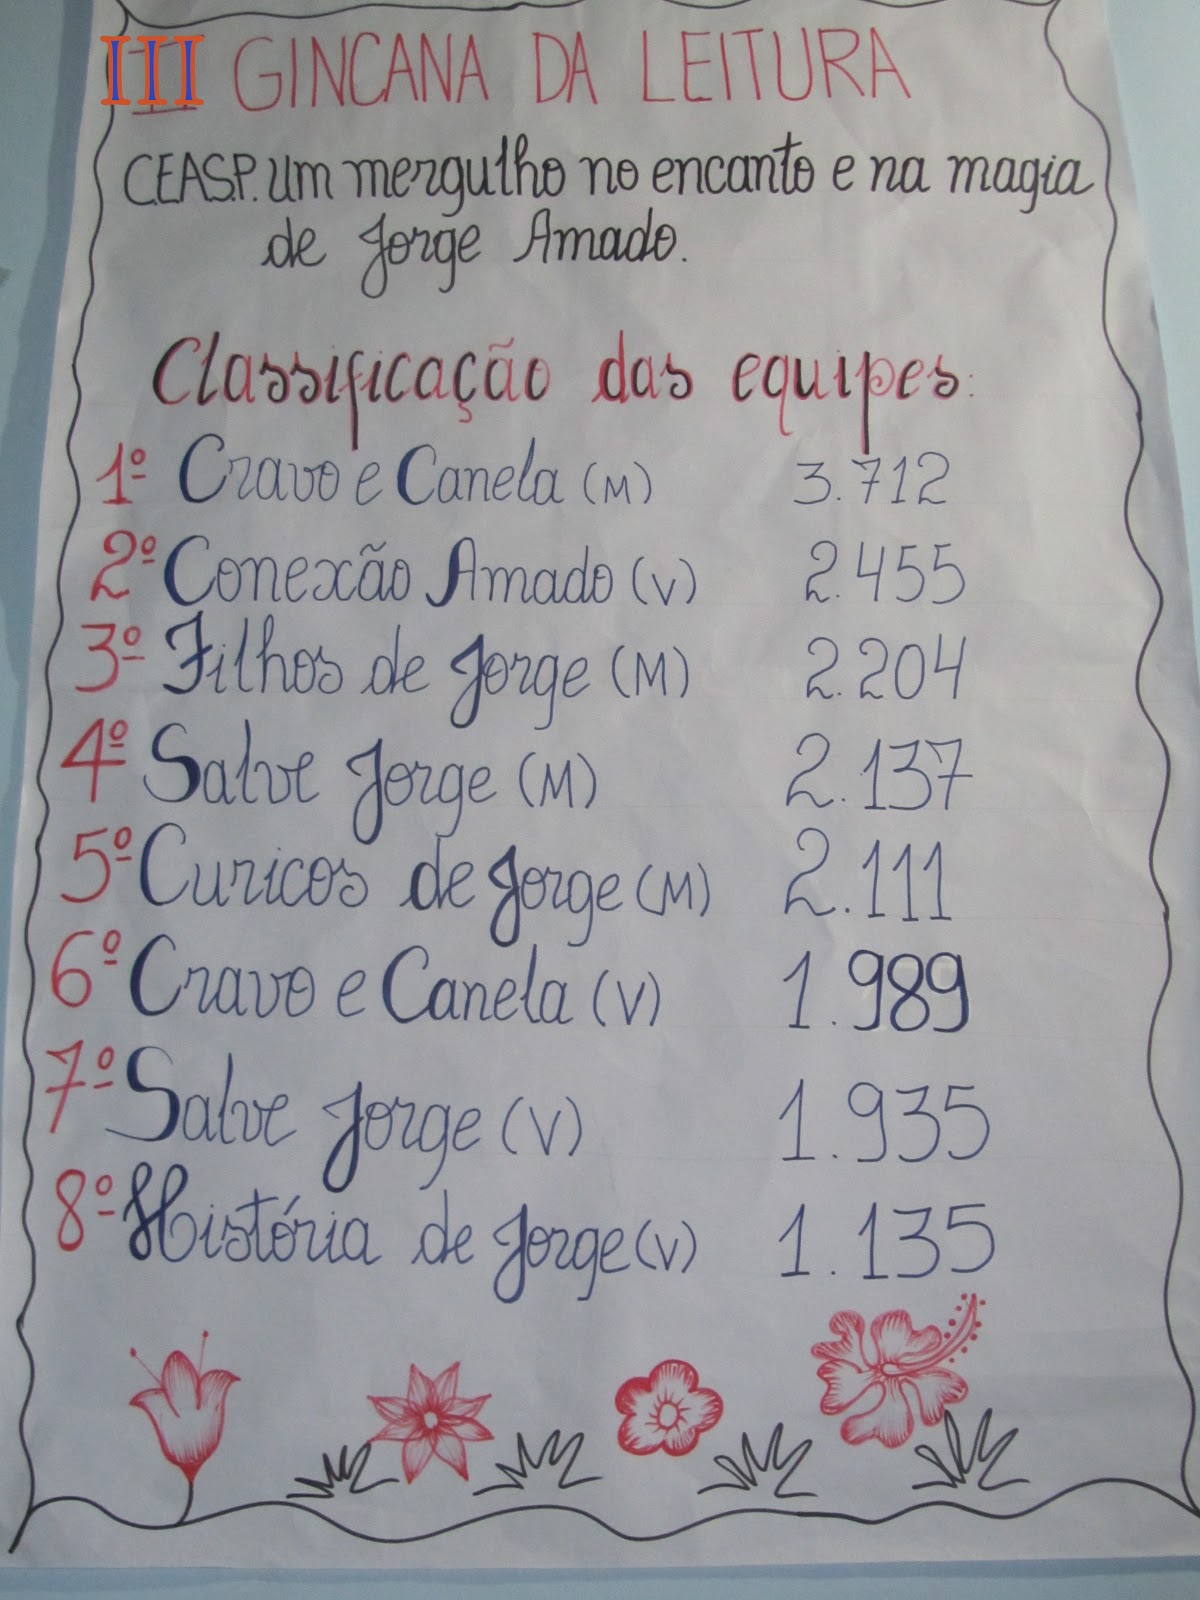 III GINCANA DA LEITURA
C.E.A.S.P. um mergulho no encanto e na magia
de Jorge Amado.
Classificação das equipes:
1º Cravo e Canela (M) 3.712
2º Conexão Amado (V) 2.455
3º Filhos de Jorge (M) 2.204
4º Salve Jorge (M) 2.137
5º Curicos de Jorge (M) 2.111
6º Cravo e Canela (V) 1.989
7º Salve Jorge (V) 1.935
8º História de Jorge (V) 1.135